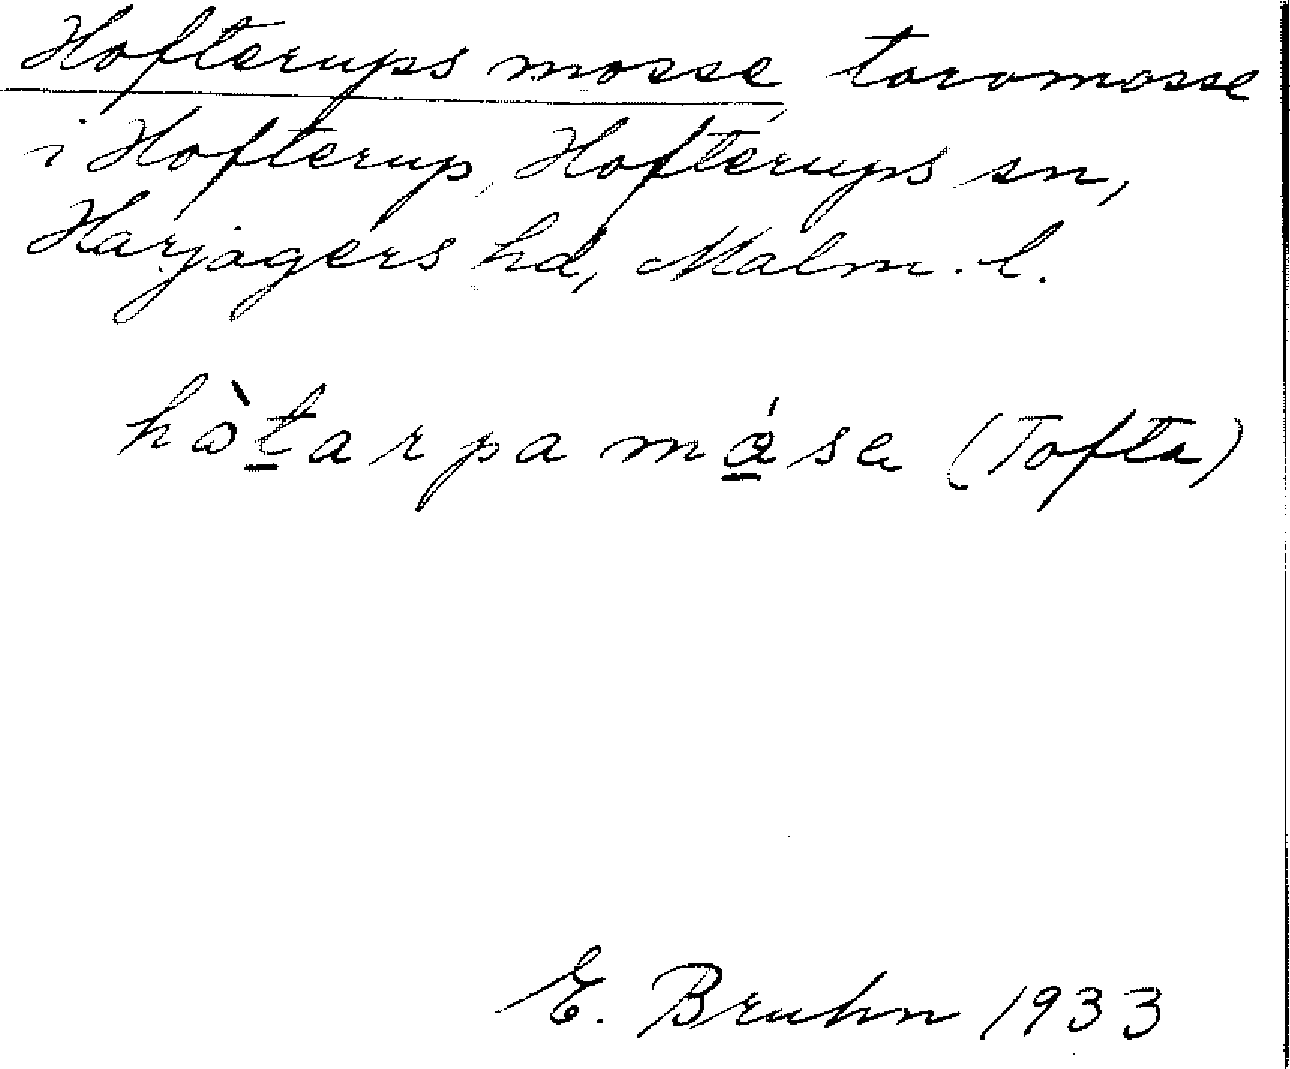 Hofterups mosse, torvmosse
i Hofterup, Hofterups sn,
Harjagers hd, Malm. l.
hòtarpa måsa (Tofta)
E. Bruhn 1933